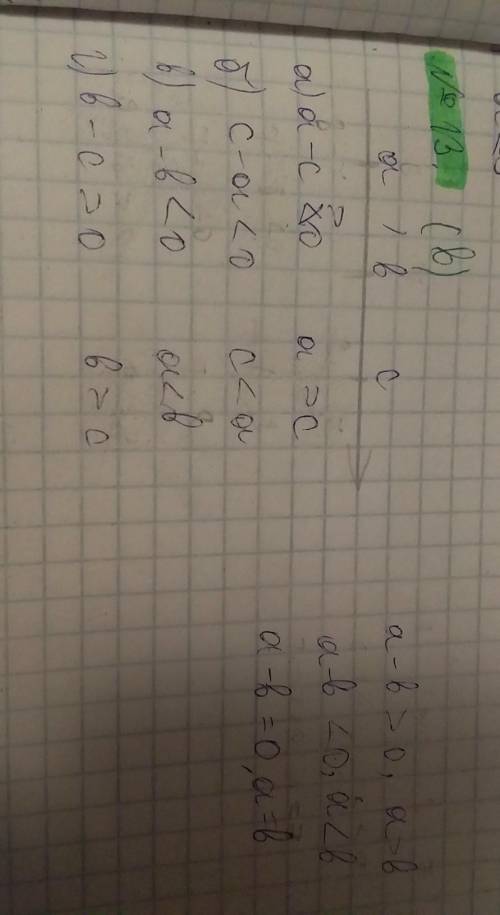 № 13. (в)
a , в c
а) a - c ≥ 0 a = c
б) c - a < 0 c < a
в) a - в < 0 a < в
г) в - c = 0 в = c
a - в > 0, a > в
a - в < 0, a < в
a - в = 0, a = в